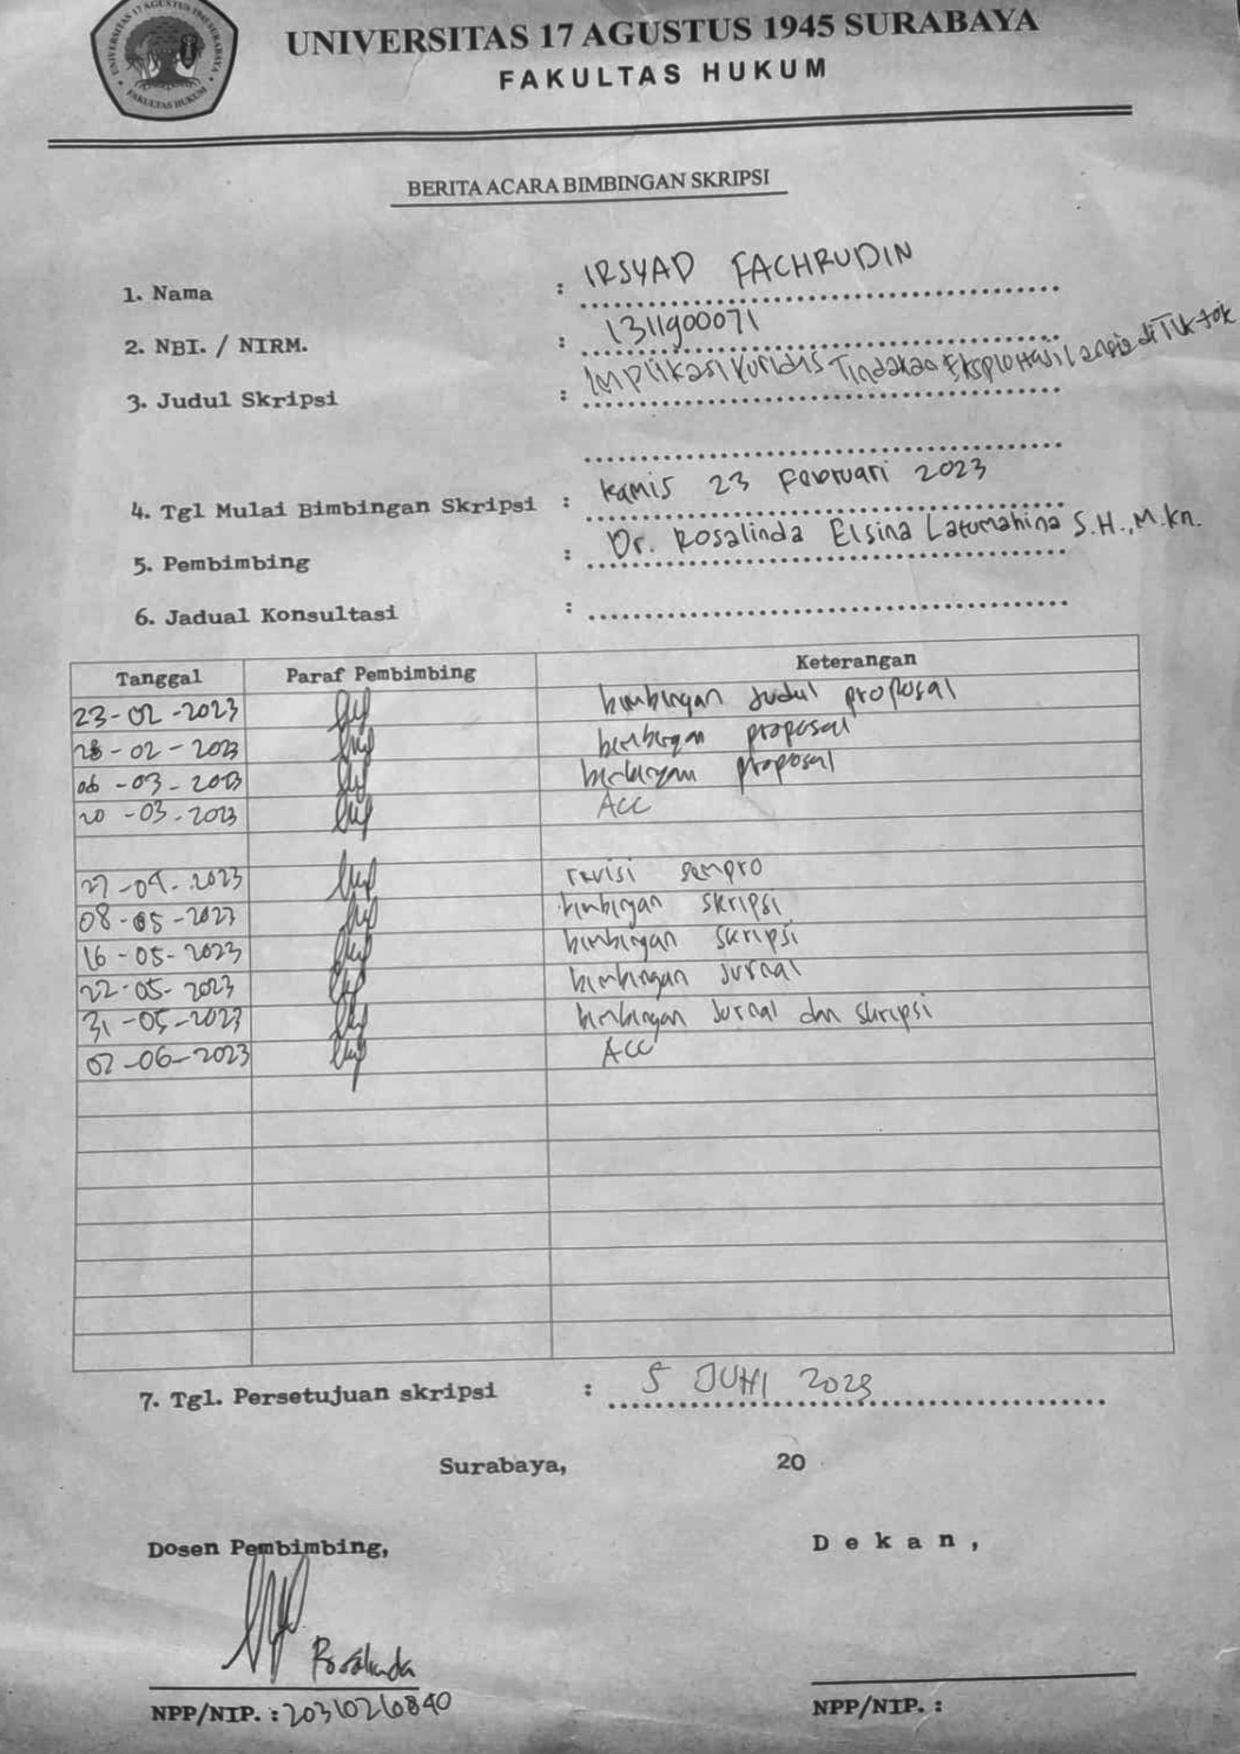 UNIVERSITAS 17 AGUSTUS 1945 SURABAYA
FAKULTAS HUKUM
UNIVERSITAS 17 AGUSTUS 1945 SURABAYA
FAKULTAS HUKUM
BERITA ACARA BIMBINGAN SKRIPSI
1. Nama : IRSYAD FACHRUDIN
2. NBI. / NIRM. : 1311900071
3. Judul Skripsi : Implikasi Yuridis Tindakan Eksploitasi Lansia di TikTok
4. Tgl Mulai Bimbingan Skripsi : Kamis 23 Februari 2023
5. Pembimbing : Dr. Rosalinda Elsina Latumahina S.H., M.Kn.
6. Jadual Konsultasi :
Tanggal Paraf Pembimbing Keterangan
23-02-2023 bimbingan Judul proposal
28-02-2023 bimbingan proposal
06-03-2023 bimbingan proposal
20-03-2023 Acc
27-04-2023 revisi sempro
08-05-2023 bimbingan skripsi
16-05-2023 bimbingan skripsi
22-05-2023 bimbingan Jurnal
31-05-2023 bimbingan Jurnal dan skripsi
02-06-2023 Acc
7. Tgl. Persetujuan skripsi : 5 JUNI 2023
Surabaya, 20
Dosen Pembimbing, Dekan,
Rosalinda
NPP/NIP. : 20310260840 NPP/NIP. :